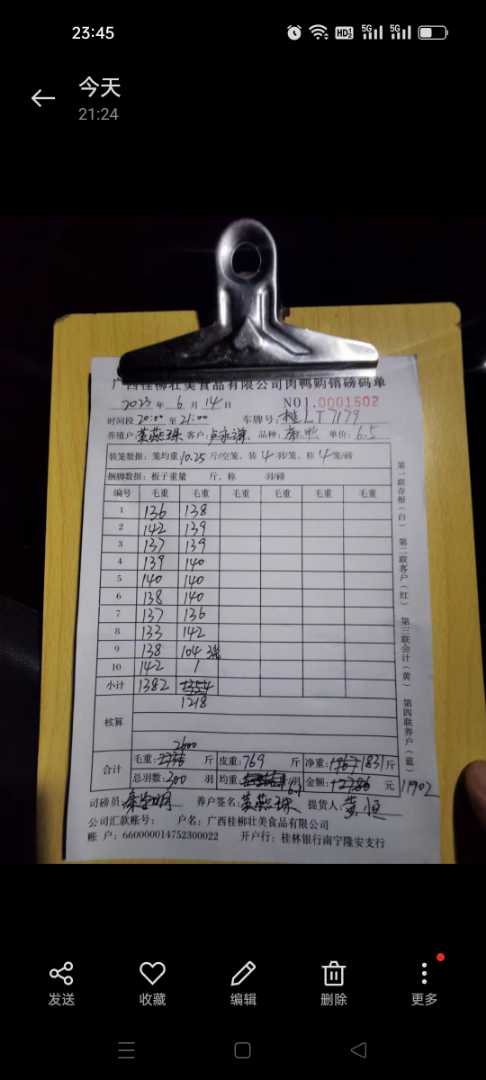 23:45
今天
21:24
广西桂柳壮美食品有限公司肉鸭购销磅码单
2023 年 6 月 14 日 NO1.0001602
时间段 20:00 至 21:00 车牌号: 桂LT7179
养殖户 客户: 品种: 单价: 6.5
装笼数据: 笼均重 10.25 斤/空笼、装 4 羽/笼、称 4 笼/磅
捆脚数据: 板子重量 斤、称 羽/磅
编号 毛重 毛重 毛重 毛重 毛重 毛重
1 136 138
2 142 139
3 137 139
4 139 140
5 140 140
6 138 140
7 137 136
8 133 142
9 138 104 3笼
10 142 /
小计 1382
1218
核算
2600
合计 毛重: 斤 皮重: 769 斤 净重: 1831 斤
总羽数: 300 羽 均重: 6.1 羽 金额: 元 11902
司磅员 养户签名: 提货人: 黄恒
公司汇款账号: 户名: 广西桂柳壮美食品有限公司
账 户: 660000014752300022 开户行: 桂林银行南宁隆安支行
第一联存根(白) 第二联客户(红) 第三联会计(黄) 第四联养户(蓝)
发送 收藏 编辑 删除 更多